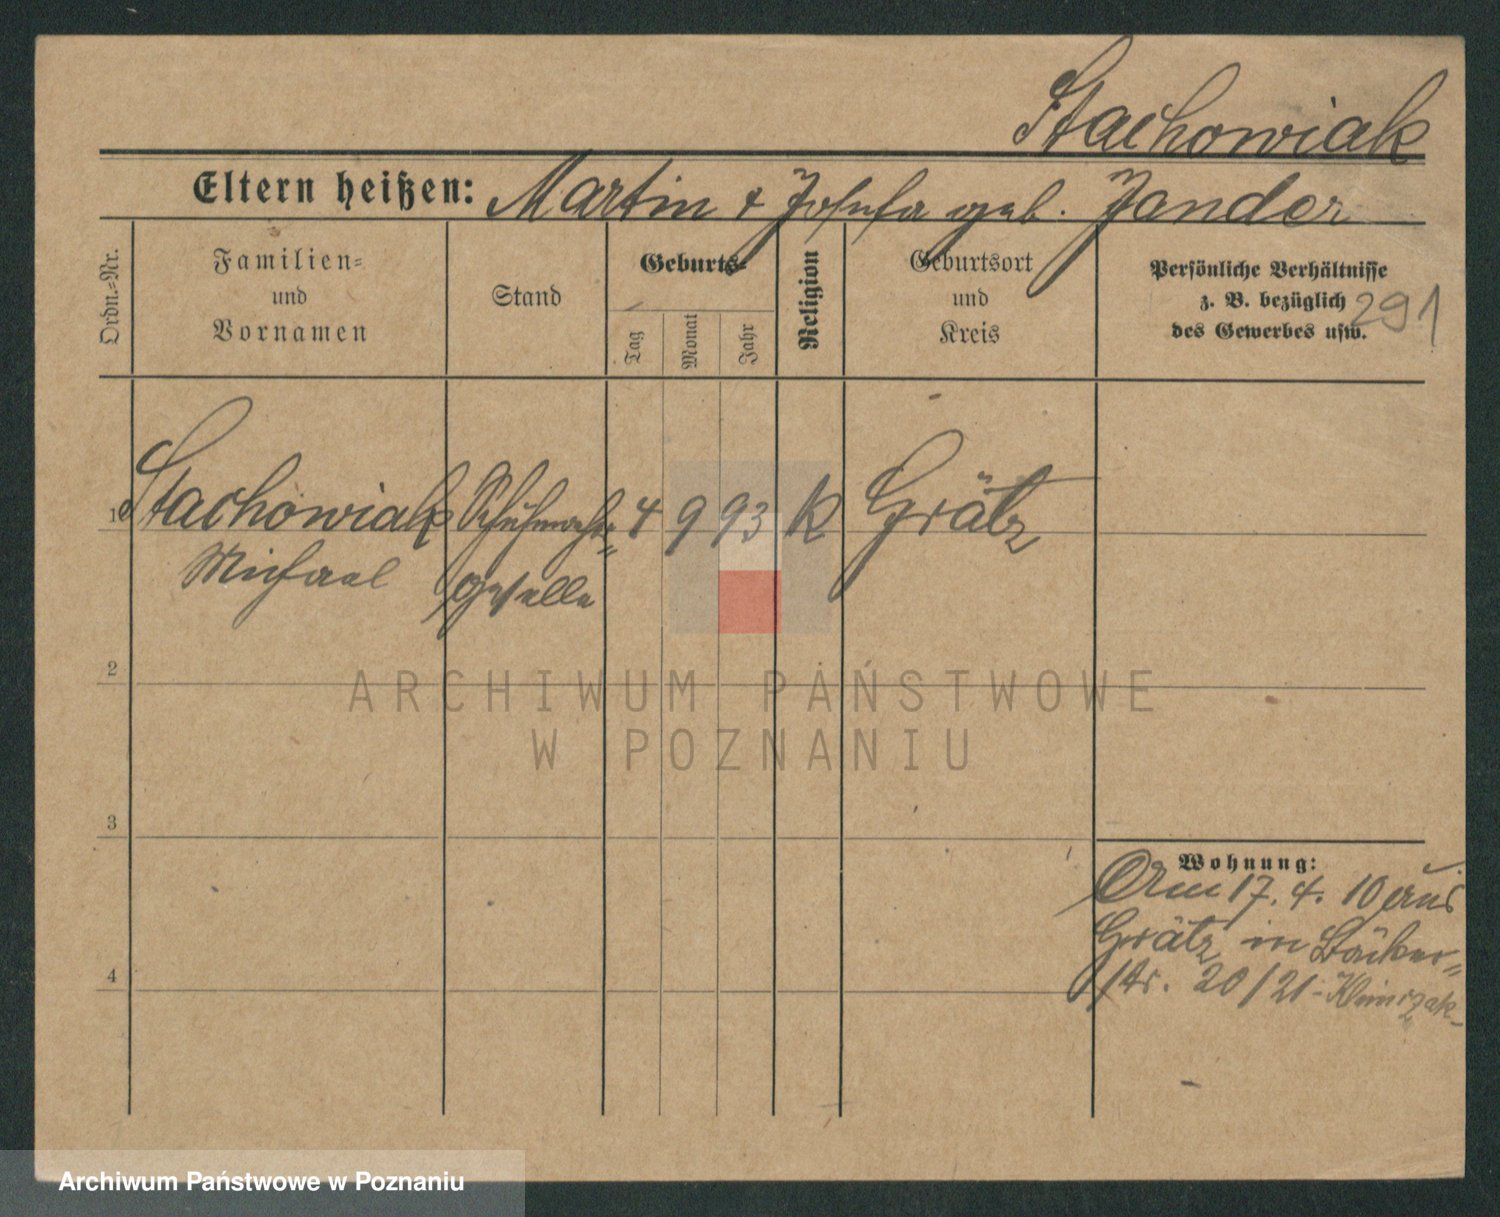 Stachowiak
Eltern heißen: Martin & Josefa geb. Jander
Ordn.=Nr.
Familien=
und
Vornamen
Stand
Geburts=
Tag
Monat
Jahr
Religion
Geburtsort
und
Kreis
Persönliche Verhältnisse
z. B. bezüglich
des Gewerbes usw.
291
1 Stachowiak Schuhmacher= 4 9 93 K Grätz
Michael geselle
2
ARCHIWUM PAŃSTWOWE
W POZNANIU
3
Wohnung:
Am 17. 4. 10 aus
Grätz in Bäcker=
4
str. 20/21-
Archiwum Państwowe w Poznaniu